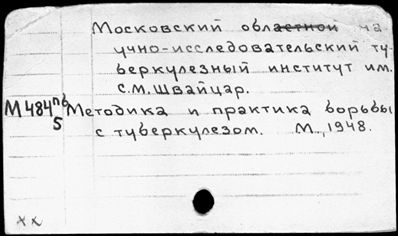 Московский областной на
учно-исследовательский ту-
беркулезный институт им.
С.М. Швайцар.
М484пв Методика и практика борьбы
5 с туберкулезом. М., 1948.
хх